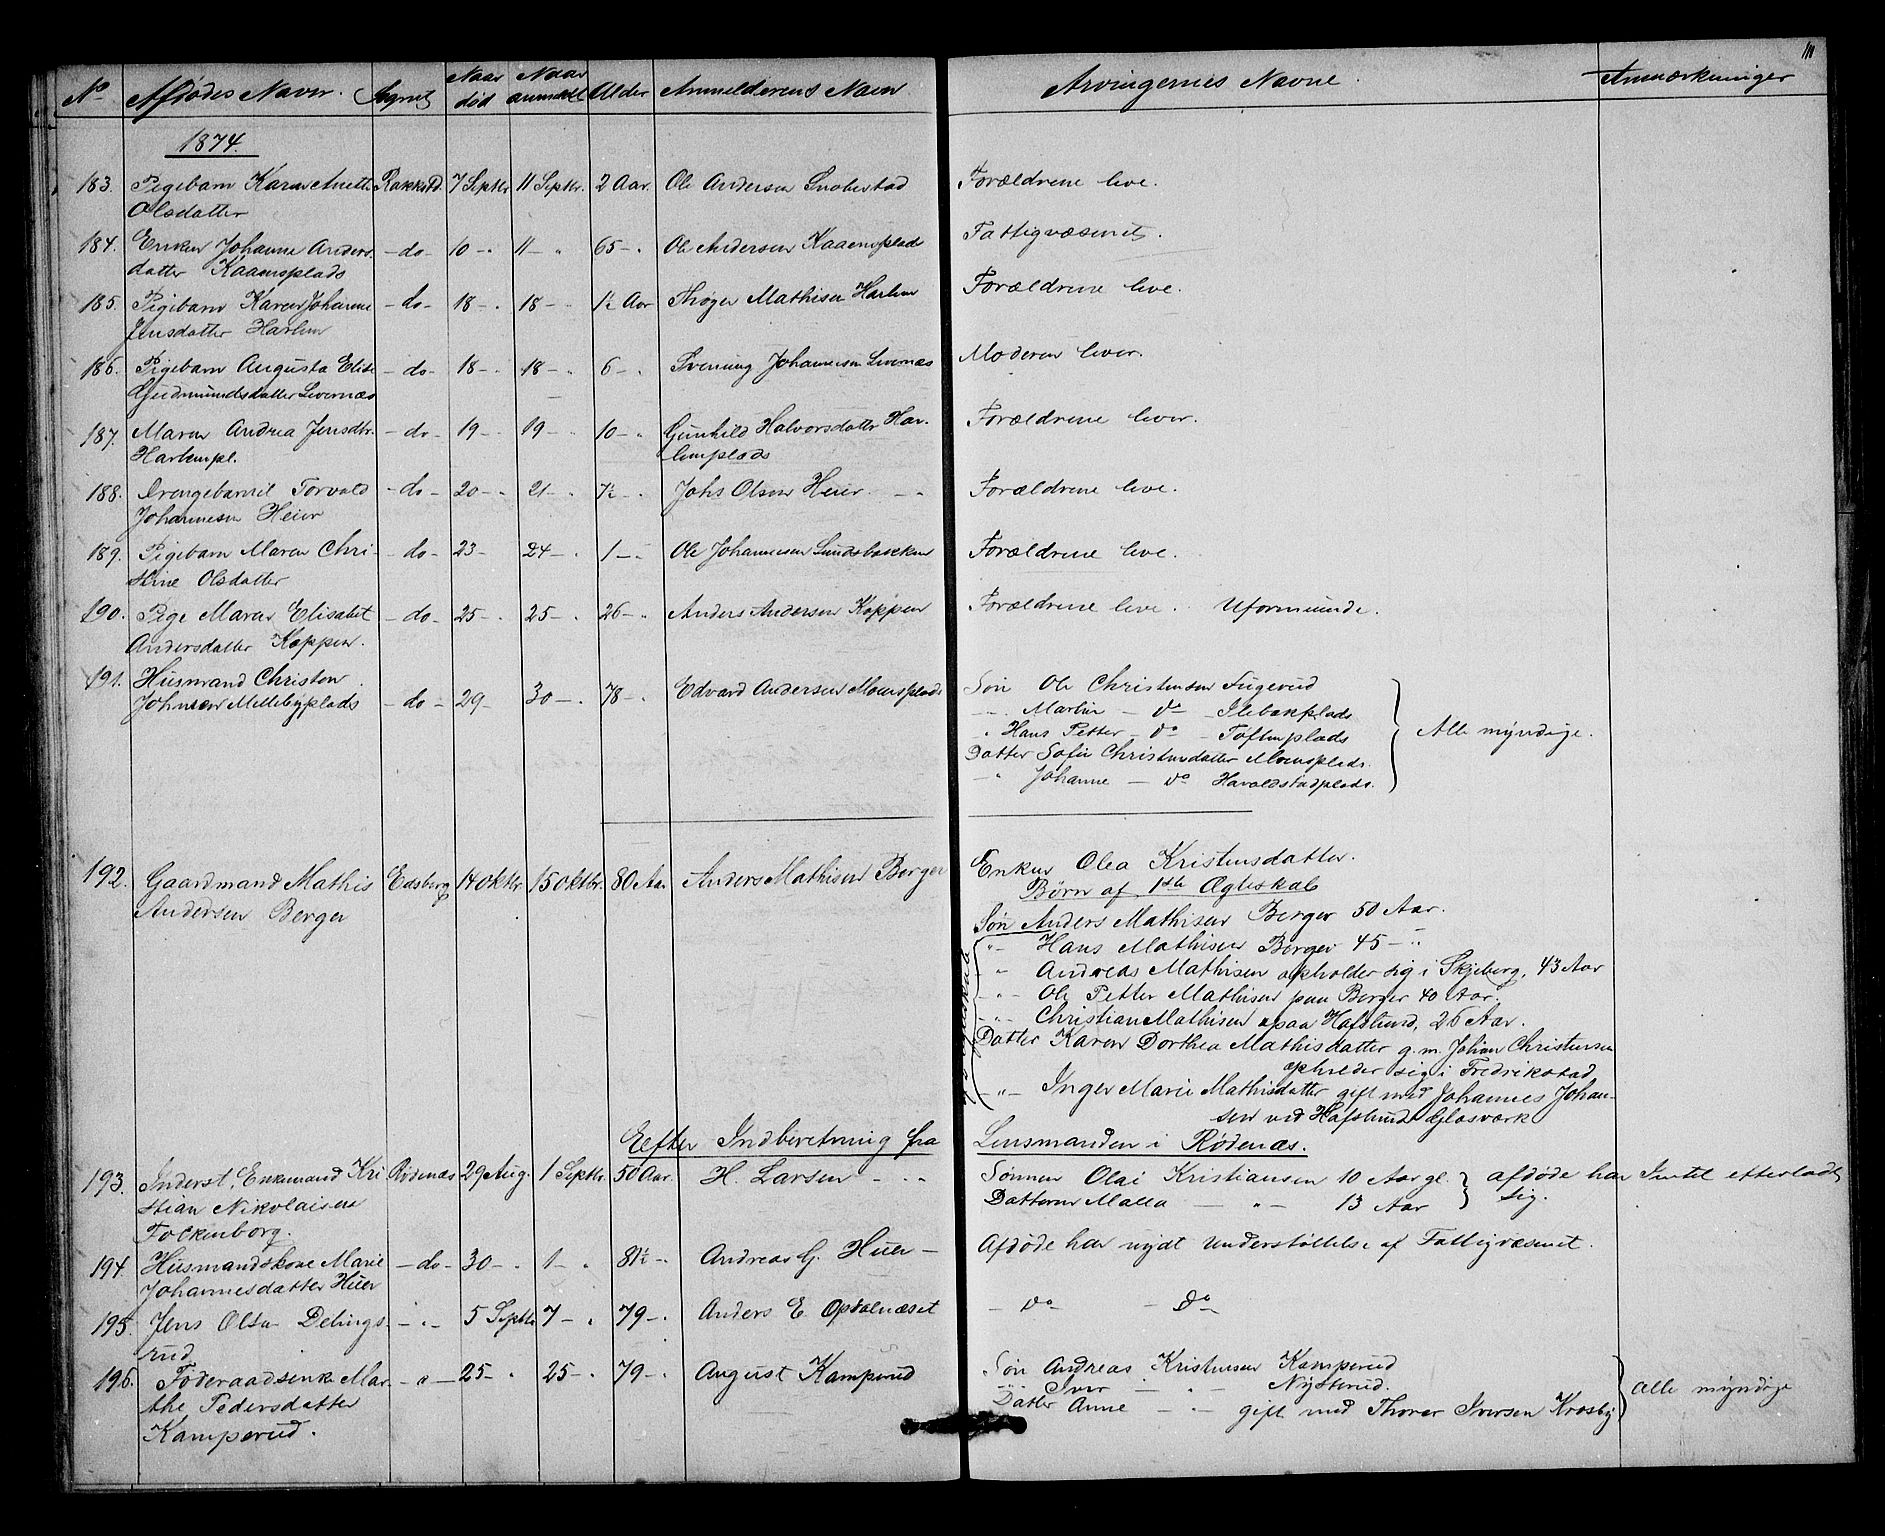 111
No Afdødes Navn. Sognet Naar død Naar anmeldt Alder Anmelderens Navn Arvingernes Navne. Anmærkninger
1874.
183. Pigebarn Karen Anette Rakkestd. 7 Septbr 11 Septbr. 2 Aar. Ole Andersen Forældrene leve.
Olsdatter
184. Enken Johanne Anders- - do - 10 - " 11 - " 65 - " Ole Andersen Kaaensplads Fattigvæsenet.
datter Kaaensplads
185. Pigebarn Karen Johanne - do - 18 - " 18 - " 1½ Aar Thøger Mathisen Harlem Forældrene leve.
Jensdatter Harlem
186. Pigebarn Augusta Elise - do - 18 - " 18 - " 6 - " Svenung Johannesen Levernæs Moderen lever.
Gudmundsdatter Levernæs
187. Maren Andrea Jensdtr. - do - 19 - 19 - " 10 - " Gunhild Halvorsdatter Har- Forældrene lever.
Harlempl. lemplads
188. Drengebarnet Torvald - do - 20 - " 21 - " 7½ - " Johs Olsen Heier. - " Forældrene leve.
Johannesen Heier
189. Pigebarn Maren Chri- - do - 23 - 24 - " 1 - " Ole Johannesen Lundsbakken Forældrene leve.
stine Olsdatter
190. Pige Maren Elisabet - do - 25 - " 25 - " 26 - " Anders Andersen Koppen Forældrene leve. Uformuende.
Andersdatter Koppen.
191. Husmand Christen
Johnsen Mellebyplads - do - 29 - 30 - " 78 - " Edvard Andersen Moensplads Søn Ole Christensen Fugerud
- " Martin - do - Ilebækplads
" Hans Petter - do - Toftenplads Alle myndige.
Datter Sofie Christensdatter Moensplads.
- " Johanne - do Haraldstadplads.
192. Gaardmand Mathis Edsberg 14 Oktbr. 15 Oktbr. 80 Aar. Anders Mathisen Berger Enken Olea Kristensdatter.
Andersen Berger Børn af 1ste Ægteskab
Søn Anders Mathisen Berger 50 Aar.
" - Hans Mathisen Berger 45 - "
" Andreas Mathisen opholder sig i Skjeberg, 43 Aar
- " - Ole Petter Mathisen paa Berger 40 Aar.
- " - Christian Mathisen opaa Hafslund, 26 Aar.
Datter Karen Dorthea Mathisdatter g. m. Johan Christensen
opholder sig i Fredrikstad
- " - Inger Marie Mathisdatter gift med Johannes Johan-
sen ved Hafslund Glasværk
Eefter Indberetning fra Lensmanden i Rødenæs.
193. Inderst, Enkemand Kri Rødenæs 29 Aug. 1 Septbr. 50 Aar. H. Larsen - " - Sønnen Olai Kristiansen 10 Aar gl. afdøde har Intet efterladt
stian Nikolaisen Datteren Malla - " - 13 Aar sig.
Fockenborg.
194. Husmandskone Marie - do - 30 - " 1 - " 81½ - " Andreas G. Huer - Afdøde har nydt Understøttelse af Fattigvæsenet.
Johannesdatter Huer
195. Jens Olsen Delings- - " - 5 Septbr 7 - " 79 - " Anders E. Opdalnæset - do - do -
rud
196. Føderaadsenke Mar- - " - 25 - " 25 - " 79 - " August Kamperud Søn Andreas Kristensen Kamperud
the Pedersdatter - " - Iver - " - Nysterud. alle myndige
Kamperud. Datter Anne - " - gift med Thorer Iversen Krosby